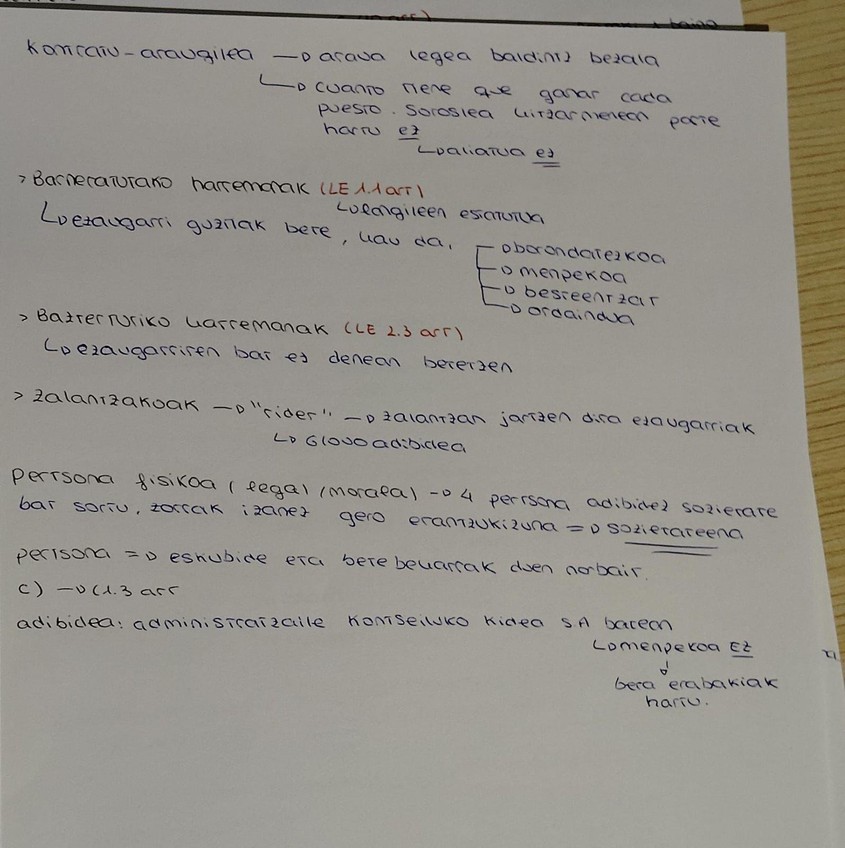 Kontratu-araugilea → araua legea balditz bezala
↳ cuanto tiene que ganar cada
puesto. Soroslea hitzarmenean parte
hartu ez
↳ aliatua ez
> Barneratutako harremanak (LE 1.1 art)
↳ langileen estatutua
↳ ezaugarri guztiak bete, hau da,
→ borondatezkoa
→ menpekoa
→ besteentzat
→ ordaindua
> Bazterturiko harremanak (LE 2.3 art)
↳ ezaugarriren bat ez denean betetzen
> Zalantzakoak → "rider" → zalantzan jartzen dira ezaugarriak
↳ Glovo adibidea
pertsona fisikoa (legal/morala) → 4 pertsona adibidez sozietate
bat sortu, zorrak izanez gero erantzukizuna => sozietateena
pertsona => eskubide eta bete beharrak duen norbait.
c) → (1.3 art
adibidea: administratzaile kontseiluko kidea SA batean
↳ menpekoa EZ
↓
bera erabakiak
hartu.